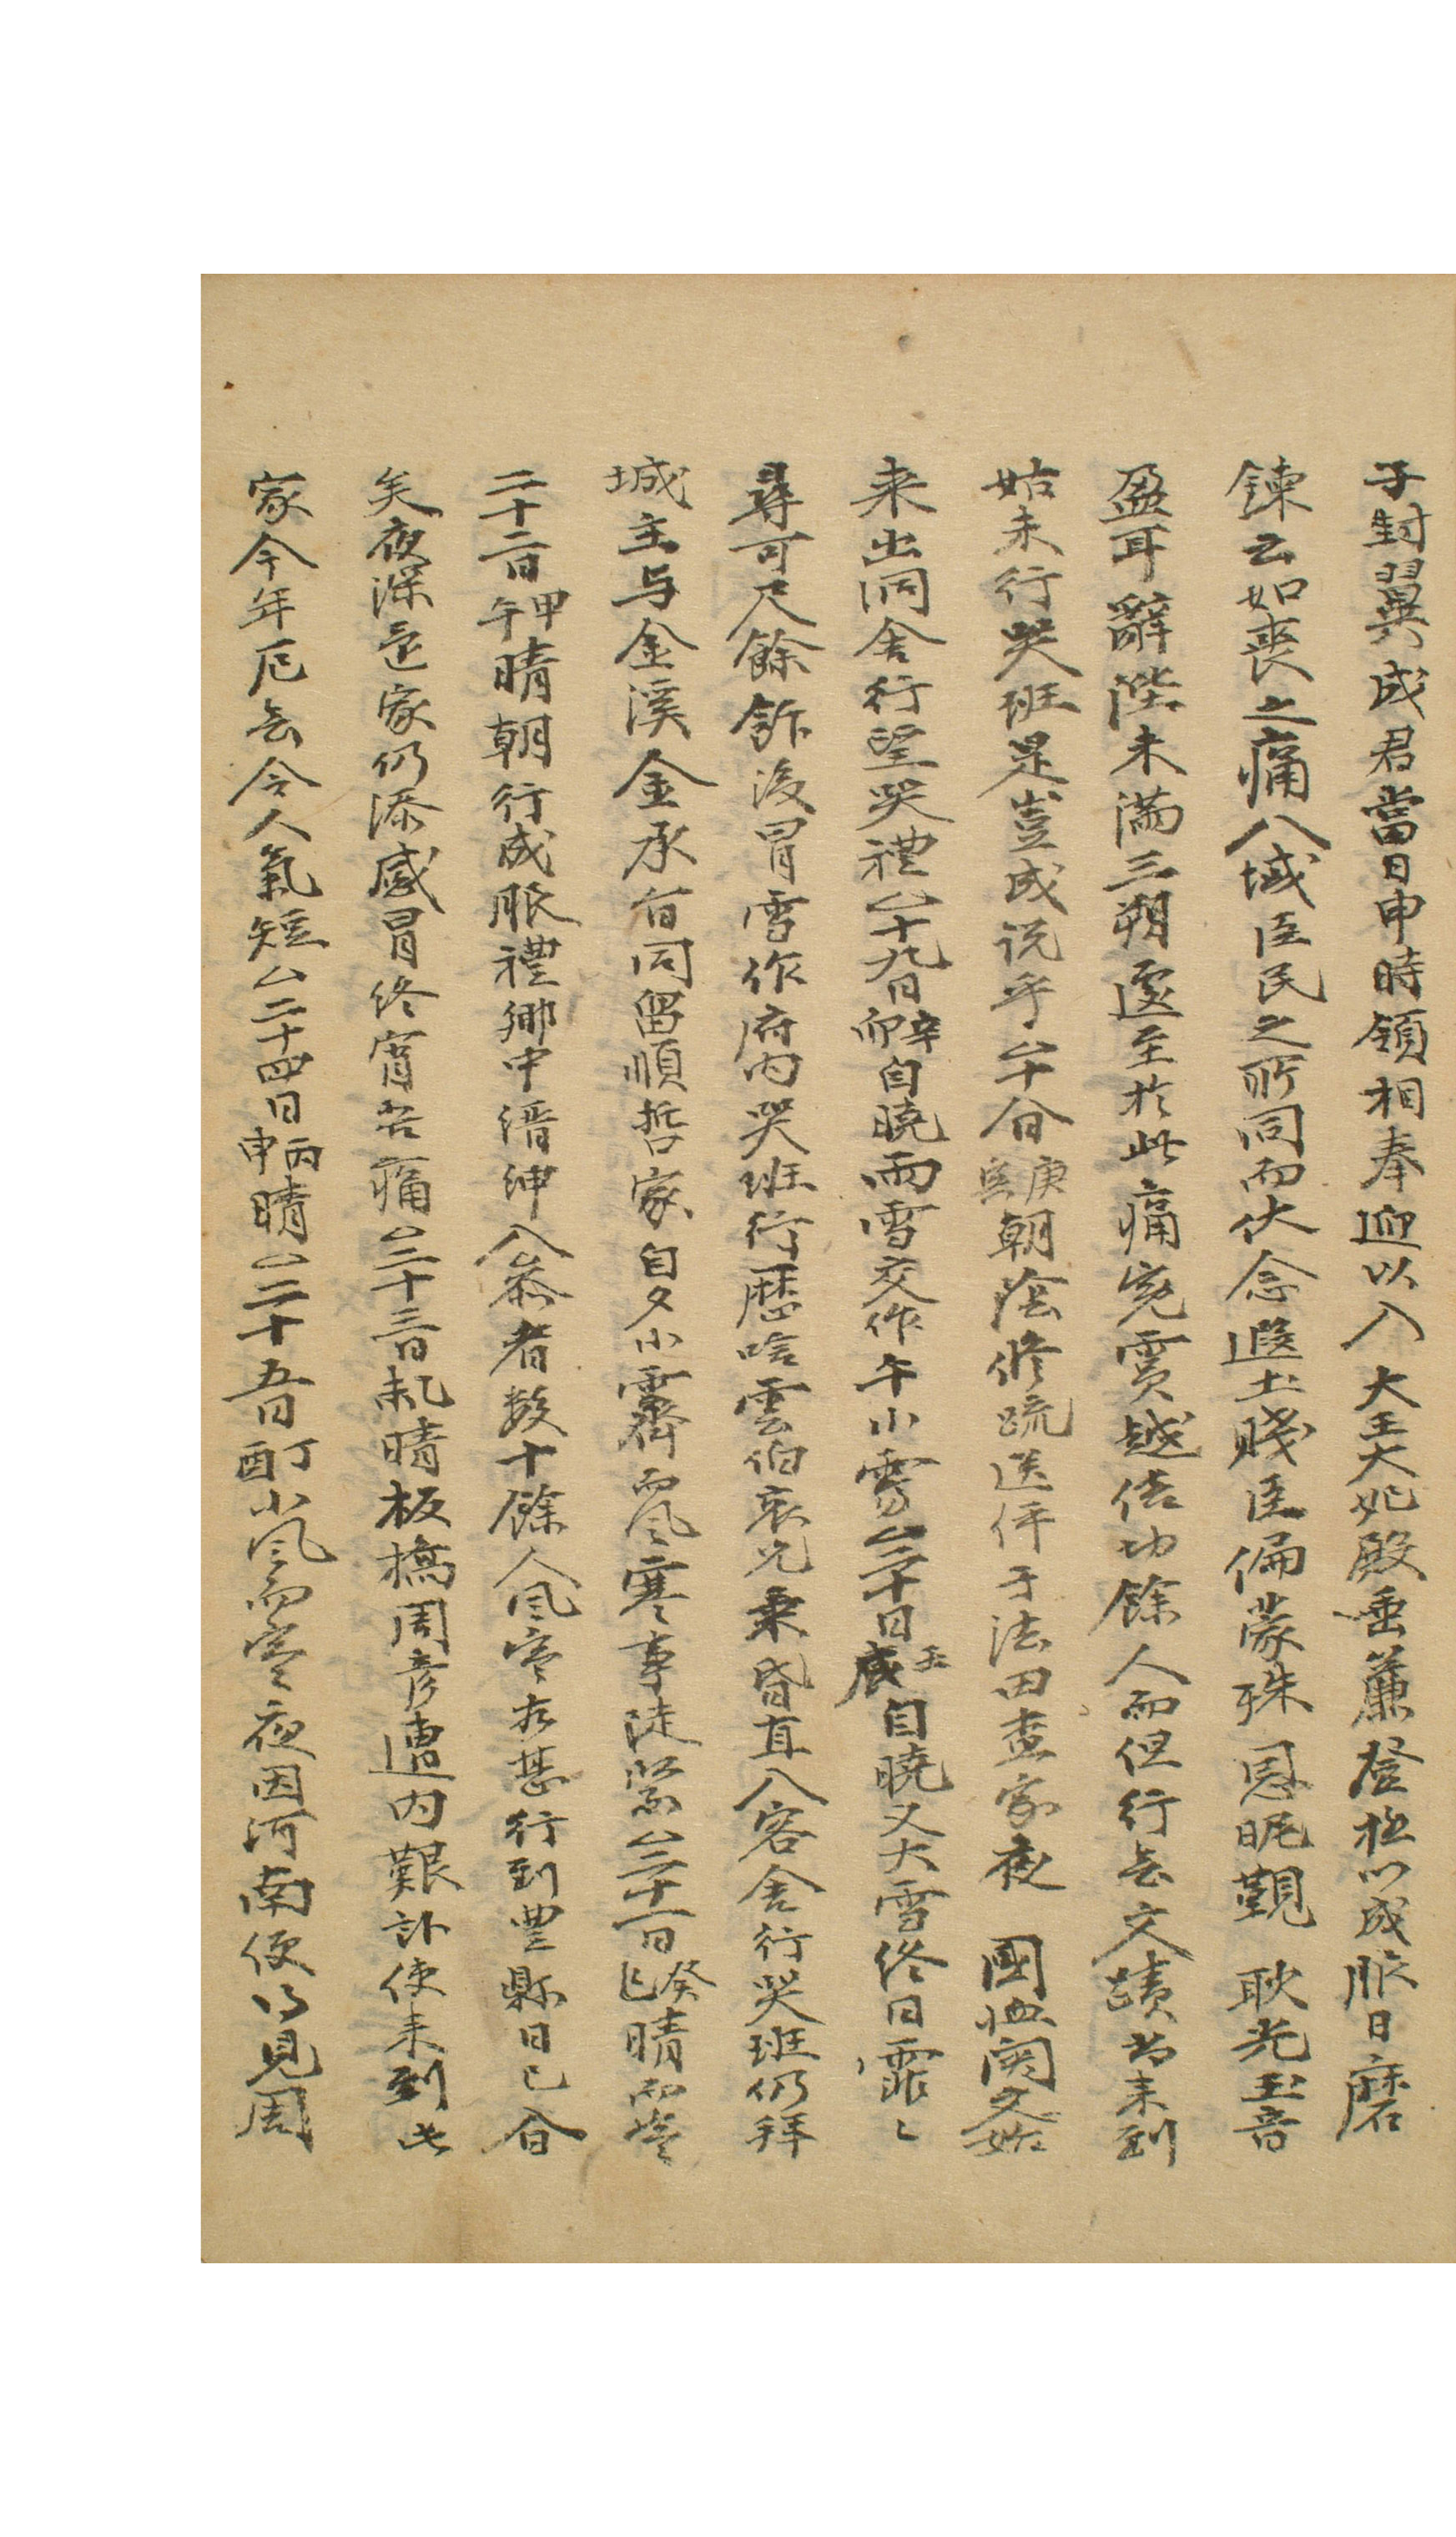 子封翼成君當日申時領相奉迎以入 大王大妃殿垂簾登極以成服日磨
鍊云如喪之痛八域臣民之所同而伏念遐土賤臣偏蒙殊 恩昵覲 耿光玉音
盈耳辭陛未滿三朔遽至於此痛寃實越他功餘人而但行無文蹟尙未到
姑未行哭班是豈成說乎△十八日庚寅朝陰修疏送伻于法田査家夜 國恤関文始
来出洞舍行望哭禮△十九日辛卯自曉雨雪交作午小雪△二十日壬辰自曉又大雪終日霏〻
尋可尺餘飯後冒雪作府內哭班行歷唁雲伯哀兄乘昏直入客舍行哭班仍拜
城主与金溪金承旨同留順哲家自夕小霽而風寒事徒緊△二十一日癸巳晴而寒
二十二日甲午晴朝行成服禮鄉中搢紳入參者数十餘人風寒太甚行到豊縣日已昏
矣夜深還家仍添感冒終宵苦痛△二十三日乙未晴板橋周彦遭內艱訃使来到此
家今年厄會令人氣短△二十四日丙申晴△二十五日丁酉小風而寒夜因河南便得見周